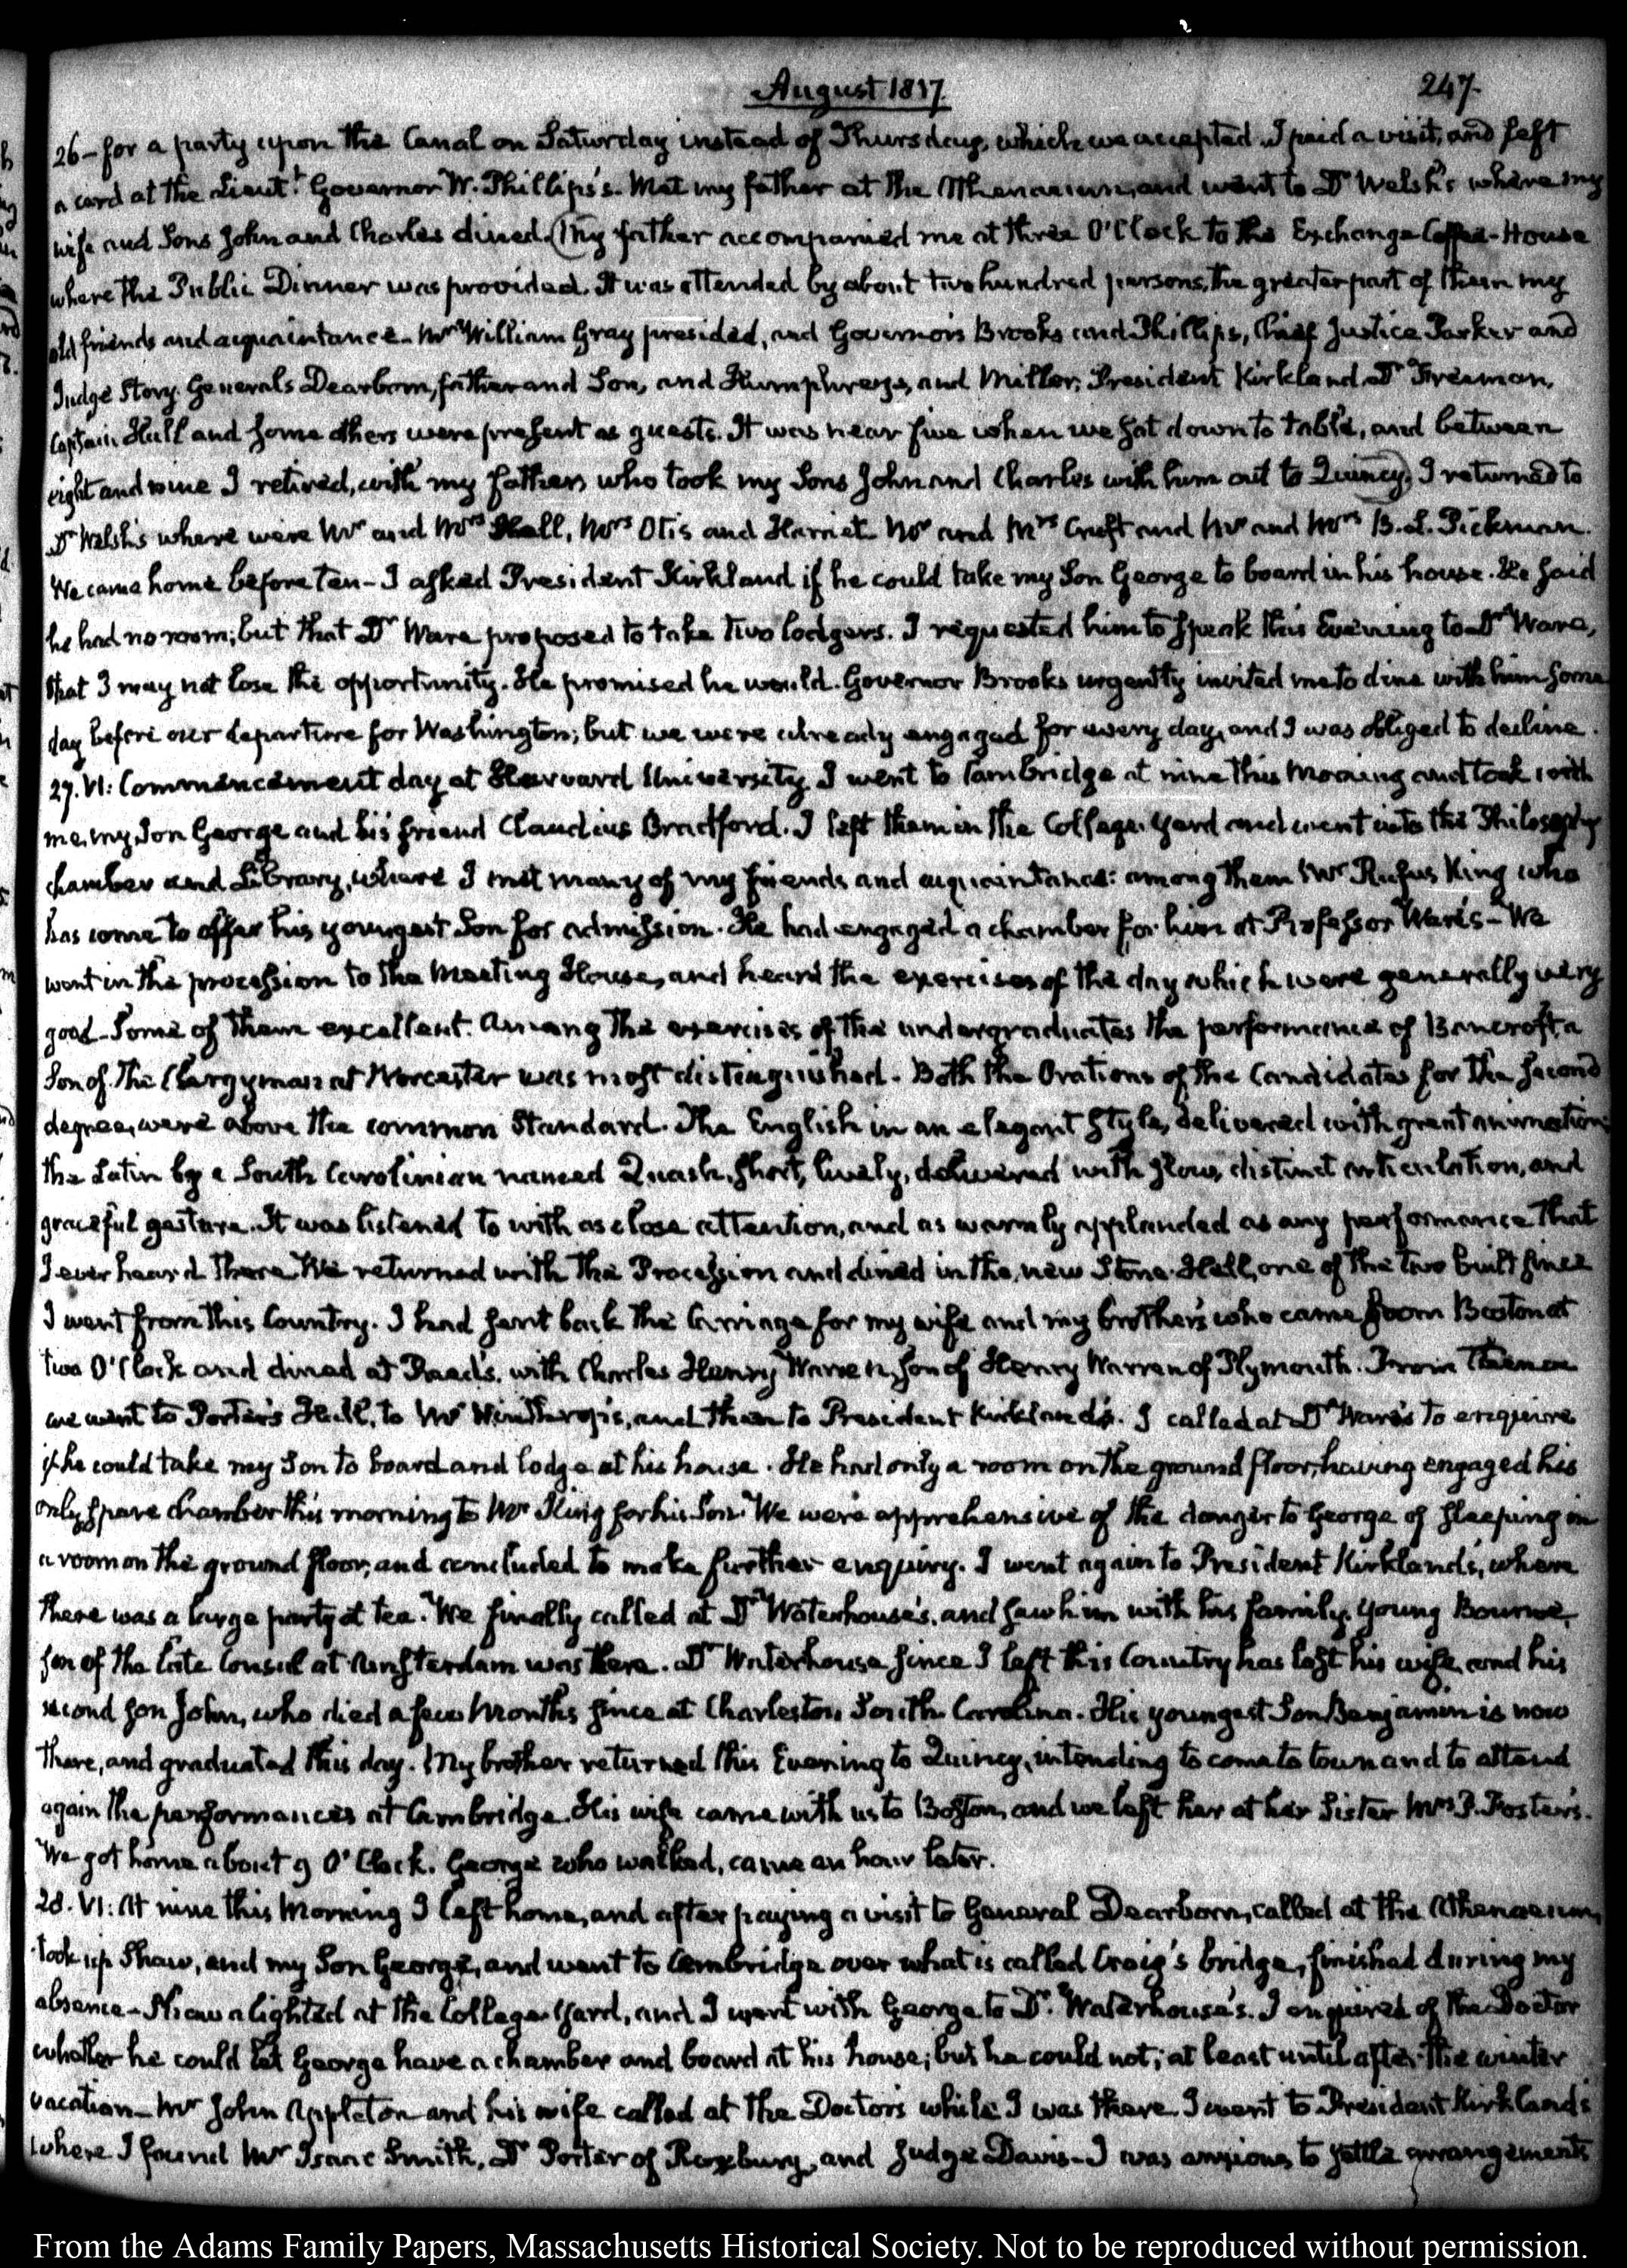 August 1817.
247.
26 – for a party upon the Canal on Saturday instead of Thursday, which we accepted. I paid a visit, and left
a card at the Lieutt. Governor W. Phillips's. Met my father at the Athenaeum, and went to Dr Welsh's where my
wife and Sons John and Charles dined. (My father accompanied me at three O'Clock to the Exchange Coffee-House
where the Public Dinner was provided. It was attended by about two hundred persons, the greater part of them my
old friends and acquaintance – Mr William Gray presided, and Governors Brooks and Phillips, Chief Justice Parker and
Judge Story. Generals Dearborn, father and Son, and Humphreys, and Miller, President Kirkland Dr Freeman,
Captain Hull and some others were present as guests. It was near five when we sat down to table, and between
eight and nine I retired, with my father, who took my Sons John and Charles with him out to Quincy.) I returned to
Dr Welsh's where were Mr and Mrs Hall, Mrs Otis and Harriet Mr and Mrs Cruft and Mr and Mrs B. L. Pickman.
We came home before ten – I asked President Kirkland if he could take my Son George to board in his house. He said
he had no room; but that Dr Ware proposed to take two lodgers. I requested him to speak this Evening to Dr Ware,
that I may not lose the opportunity. He promised he would. Governor Brooks urgently invited me to dine with him some
day before our departure for Washington; but we were already engaged for every day, and I was obliged to decline.
27. VI: Commencement day at Harvard University. I went to Cambridge at nine this Morning and took with
me, my Son George and his friend Claudius Bradford. I left them in the College yard and went into the Philosophy
chamber and Library, where I met many of my friends and acquaintance: among them Mr Rufus King who
has come to offer his youngest Son for admission. He had engaged a chamber for him at Professor Ware's – We
went in the procession to the Meeting House, and heard the exercises of the day which were generally very
good – Some of them excellent. Among the exercises of the undergraduates the performance of Bancroft, a
Son of the Clergyman at Worcester was most distinguished. Both the Orations of the Candidates for the second
degree, were above the common Standard. The English in an elegant style, delivered with great animation;
the Latin by a South Carolinian named Quash, short, lively, delivered with slow, distinct articulation, and
graceful gesture. It was listened to with as close attention, and as warmly applauded as any performance that
I ever heard there. We returned with the Procession and dined in the new Stone Hall, one of the two built since
I went from this Country. I had sent back the Carriage for my wife and my brother's who came from Boston at
two O'Clock and dined at Reed's, with Charles Henry Warren, son of Henry Warren of Plymouth. From thence
we went to Porter's Hall, to Mr Winthrop's, and then to President Kirkland's. I called at Dr Ware's to enquire
if he could take my Son to board and lodge at his house. He had only a room on the ground floor, having engaged his
only spare chamber this morning to Mr King for his Son. We were apprehensive of the danger to George of sleeping in
a room on the ground floor, and concluded to make further enquiry. I went again to President Kirkland's, where
there was a large party at tea. We finally called at Dr Waterhouse's, and saw him with his family. Young Bourne,
son of the late Consul at Amsterdam was there. Dr Waterhouse since I left this Country has lost his wife, and his
second son John, who died a few Months since at Charleston South Carolina. His youngest Son Benjamin is now
there, and graduated this day. My brother returned this Evening to Quincy, intending to come to town and to attend
again the performances at Cambridge. His wife came with us to Boston, and we left her at her Sister Mrs J. Foster's.
We got home about 9 O'Clock. George who walked, came an hour later.
28. VI: At nine this Morning I left home, and after paying a visit to General Dearborn, called at the Athenaeum,
took up Shaw, and my Son George, and went to Cambridge over what is called Craig's bridge, finished during my
absence – Shaw alighted at the College Yard, and I went with George to Dr. Waterhouse's. I enquired of the Doctor
whether he could let George have a chamber and board at his house; but he could not; at least until after the winter
vacation – Mr John Appleton and his wife called at the Doctors while I was there. I went to President Kirkland's
where I found Mr Isaac Smith, Dr Porter of Roxbury, and Judge Davis – I was anxious to settle arrangements
From the Adams Family Papers, Massachusetts Historical Society. Not to be reproduced without permission.